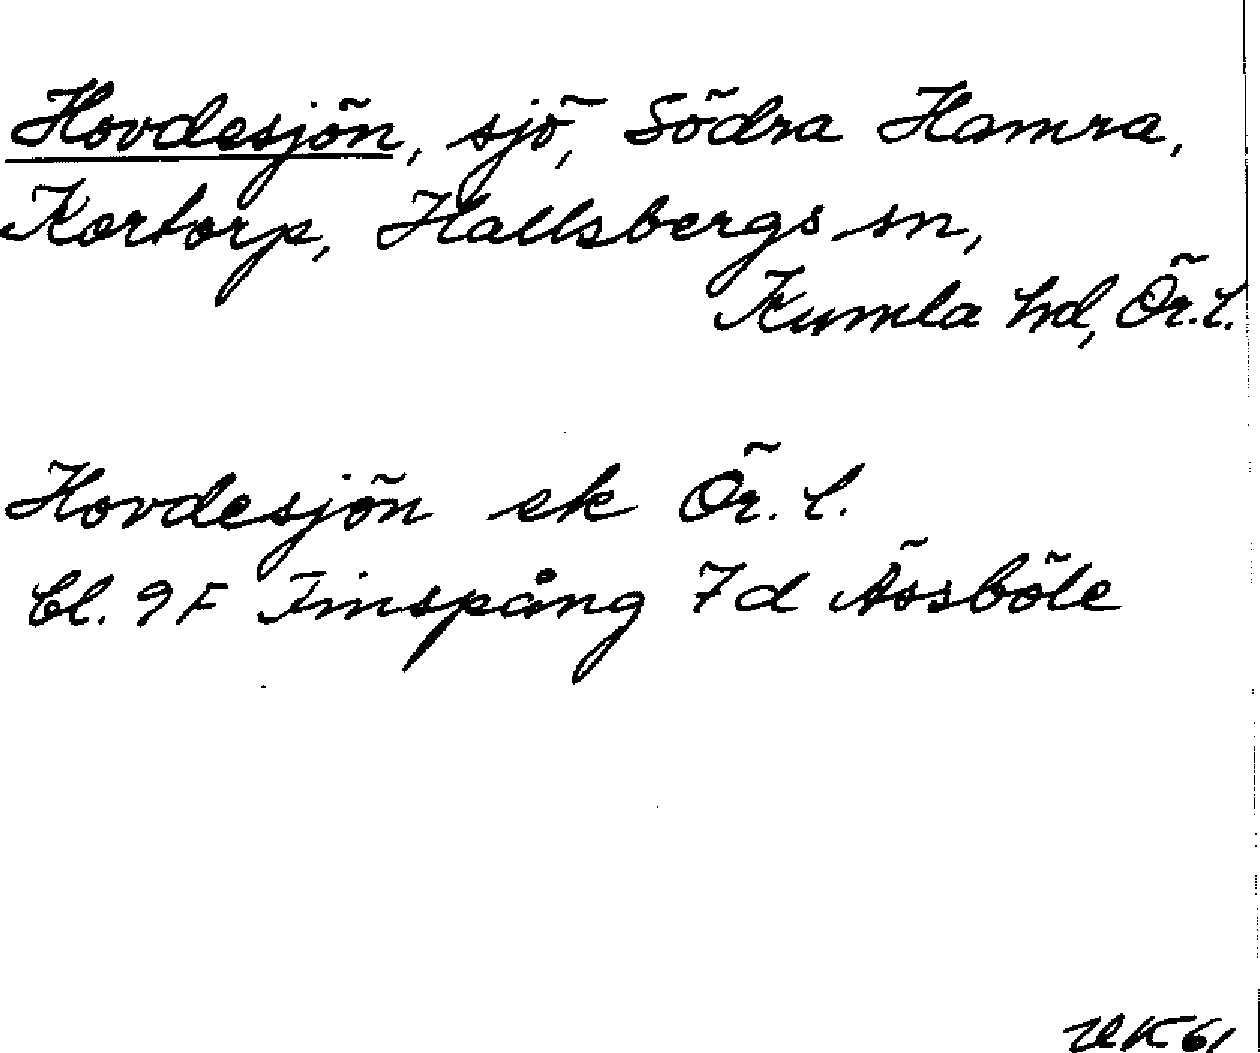 Hovdesjön, sjö, Södra Hamra,
Kortorp, Hallsbergs sn,
Kumla hd, Ör. l.
Hovdesjön ek Ör. l.
bl. 9F Finspång 7d Åssböle
UK 61